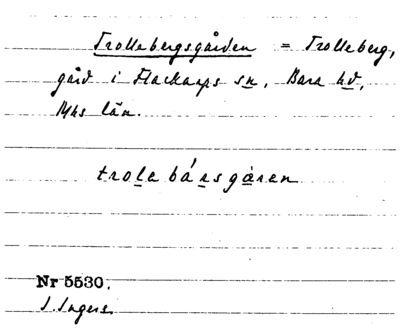 Trollebergsgården = Trolleberg,
gård i Flackarps sn, Bara hd,
Mhs län.
trolebársgàren
Nr 5530.
I. Ingers.